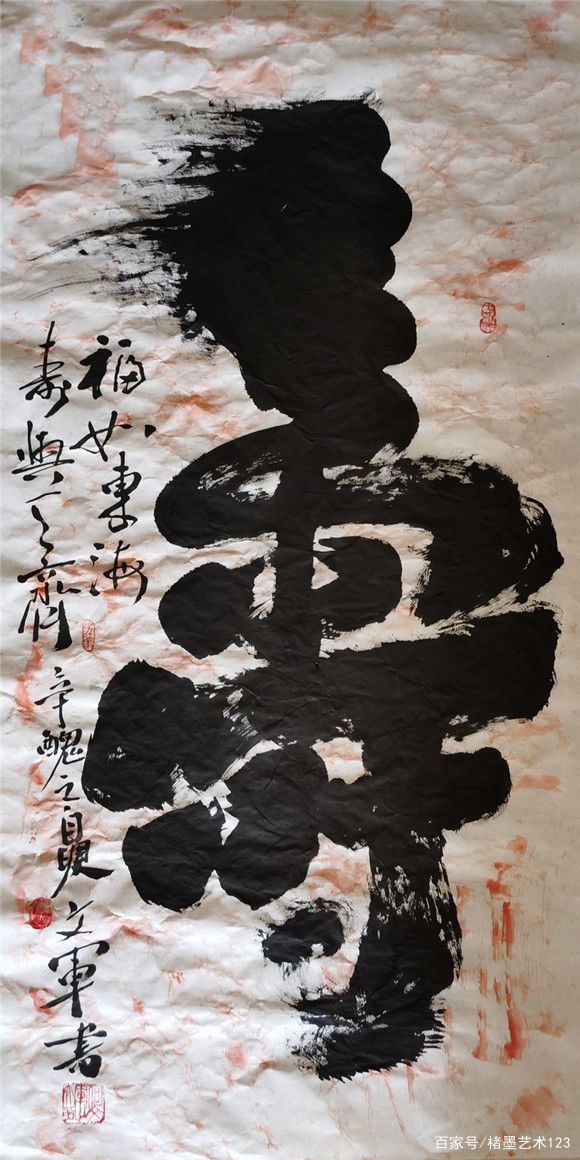 壽
福如東海
寿與天齊 辛醜之夏 文軍書
百家号/楮墨艺术123